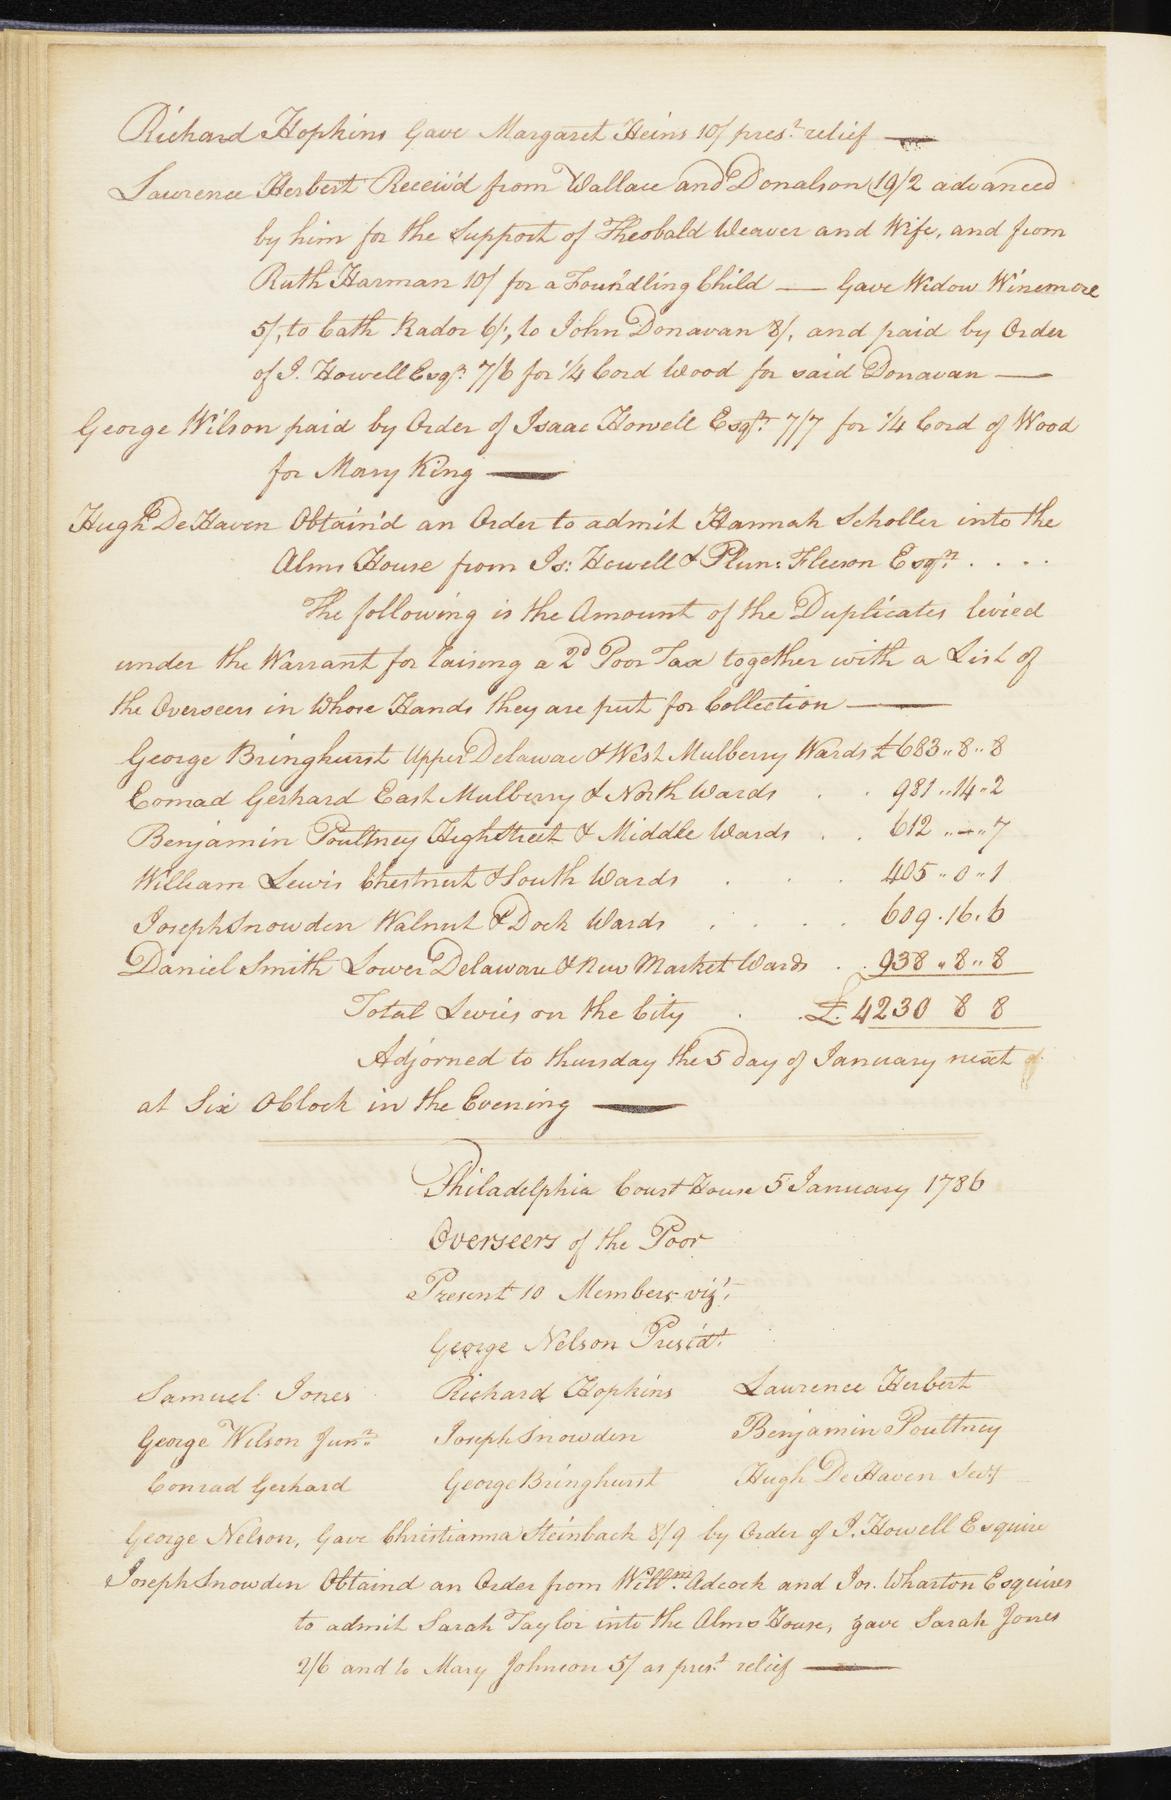 Richard Hopkins Gave Margaret Heins 10/ pres.t relief —
Lawrence Herbert Receiv'd from Wallace and Donalson 19/2 advanced
by him for the Support of Theobald Weaver and Wife, and from
Ruth Harman 10/ for a Foundling Child — Gave Widow Winemore
5/, to Cath Rador 6/, to John Donavan 8/, and paid by Order
of I. Howell Esqr. 7/6 for 1/4 Cord Wood for said Donavan —
George Wilson paid by Order of Isaac Howell Esqr. 7/7 for 1/4 Cord of Wood
for Mary King —
Hugh De Haven Obtain'd an Order to admit Hannah Scholler into the
Alms House from Is: Howell & Plun: Fleeson Esqrs. . . . .
The following is the Amount of the Duplicates levied
under the Warrant for raising a 2d Poor Tax together with a List of
the Overseers in Whose Hands they are put for Collection —
George Bringhurst Upper Delaware & West Mulberry Wards £683..8..8
Conrad Gerhard East Mulberry & North Wards . . 981..14..2
Benjamin Poultney Highstreet & Middle Wards . . 612..—..7
William Lewis Chestnut & South Wards . . . 405..0..1
Joseph Snowden Walnut & Dock Wards . . . . 609.16.6
Daniel Smith Lower Delaware & New Market Wards . . 938..8..8
Total Levies on the City . . £. 4230 8 8
Adjorned to thursday the 5 day of January next
at Six OClock in the Evening —
Philadelphia Court House 5 January 1786
Overseers of the Poor
Present 10 Members vizt.
George Nelson Presidt.
Samuel Jones Richard Hopkins Lawrence Herbert
George Wilson Junr. Joseph Snowden Benjamin Poultney
Conrad Gerhard George Bringhurst Hugh De Haven Secy
George Nelson, Gave Christianna Steinback 8/9 by Order of I. Howell Esquire
Joseph Snowden Obtaind an Order from Willm. Adcock and Jos. Wharton Esquires
to admit Sarah Taylor into the Alms House, gave Sarah Jones
2/6 and to Mary Johnson 5/ as pres.t relief —